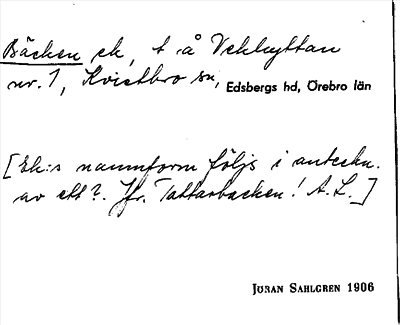 Bäcken ek, t. å Vekhyttan
nr. 1, Kvistbro sn, Edsbergs hd, Örebro län
[Ek:s namnform följs i anteckn.
av ett ?. Jfr. Tattarbacken! A.L.]
JÖRAN SAHLGREN 1906